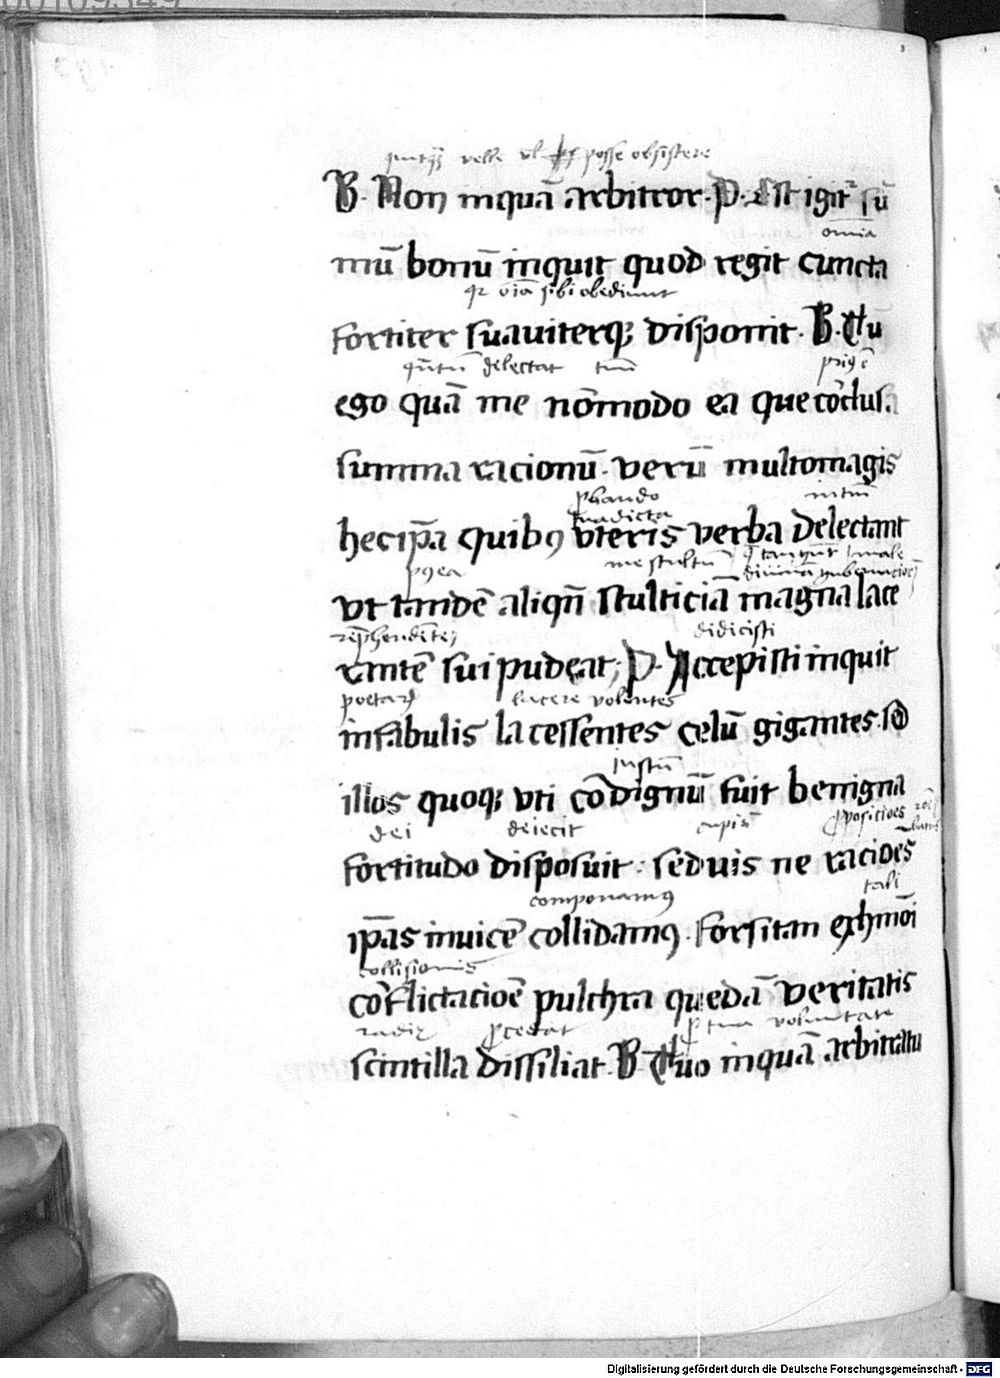 velle vl posse obsistere
B. Non inquā arbitror. P. Est igitʳ sū
omnia
mū bonū inquit quod regit cuncta
qz oīa sibi obediunt
fortiter suauiterqꝫ disponit. B. Tū
delectat
ego quā me nōmodo ea que cōclusa
summa racionū. verū multomagis
hec ip̄a quibꝯ vteris verba delectant
me stultū
vt tandē aliqn̄ stulticiā magna lace
didicisti
rantē sui pudeat; P. Accepisti inquit
lacere volentes
in fabulis lacessentes celū gigantes. sꝫ
iustū
illos quoqꝫ vti cōdignū fuit benigna
dei deiecit
fortitudo disposuit. sed uis ne racioēs
tali
componamꝯ
ip̄as inuicē collidamꝯ. Forsitan exhmōi
collisionis
cōflictacioē pulchra quedā veritatis
ꝓcedat tua voluntate
scintilla dissiliat. B. Tuo inquā arbitratu
Digitalisierung gefördert durch die Deutsche Forschungsgemeinschaft - DFG